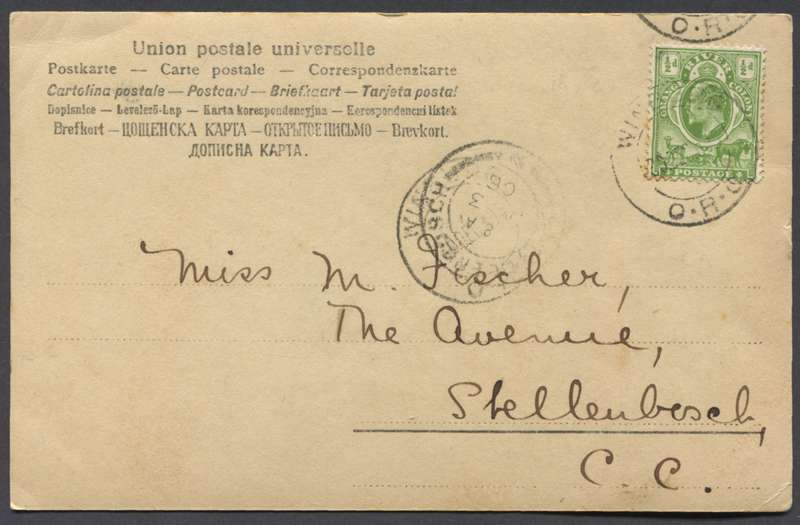 Union postale universelle
Postkarte — Carte postale — Correspondenzkarte
Cartolina postale — Postcard — Briefkaart — Tarjeta postal
Dopisnice — Levelező-Lap — Karta korespondencyjna — Korespondencni listek
Brefkort — ЦОЩЕНСКА КАРТА — ОТКРЫТОЕ ПИСЬМО — Brevkort.
ДОПИСНА КАРТА.
O·R·
½d ½d
ORANGE RIVER COLONY
POSTAGE
WIN
O·R·
Miss M. Fischer,
The Avenue,
Stellenbosch,
C. C.